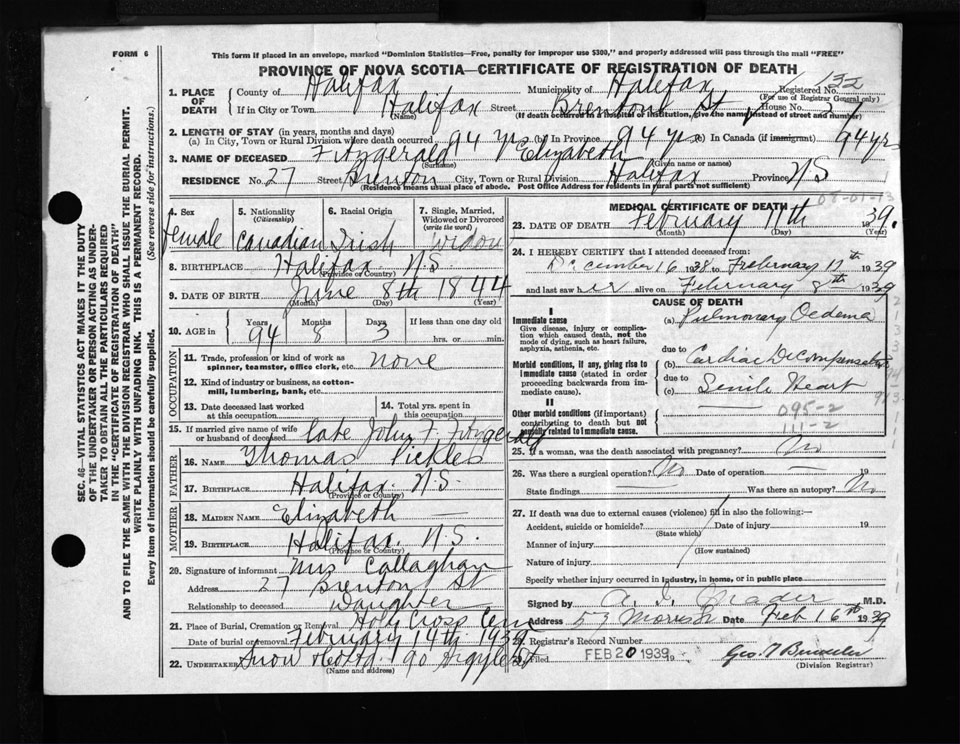 FORM 6
This form if placed in an envelope, marked "Dominion Statistics—Free, penalty for improper use $300," and properly addressed will pass through the mail "FREE"
PROVINCE OF NOVA SCOTIA—CERTIFICATE OF REGISTRATION OF DEATH
132
1. PLACE OF DEATH County of Halifax Municipality of Halifax Registered No. (For use of Registrar General only)
If in City or Town Halifax (Name) Street Brenton St House No.
(If death occurred in a hospital or institution, give the name instead of street and number)
2. LENGTH OF STAY (in years, months and days)
(a) In City, Town or Rural Division where death occurred 94 yrs (b) In Province 94 yrs (c) In Canada (if immigrant) 94 yrs
3. NAME OF DECEASED Fitzgerald (Surname) Elizabeth (Given name or names)
RESIDENCE No. 27 Street Brenton City, Town or Rural Division Halifax Province N S
(Residence means usual place of abode. Post Office Address for residents in rural parts not sufficient)
4. Sex female
5. Nationality (Citizenship) Canadian
6. Racial Origin Irish
7. Single, Married, Widowed or Divorced (write the word) widow
8. BIRTHPLACE Halifax N.S. (Province or Country)
9. DATE OF BIRTH June 8th 1844 (Month) (Day) (Year)
10. AGE in Years 94 Months 8 Days 3 If less than one day old hrs. or min.
OCCUPATION
11. Trade, profession or kind of work as spinner, teamster, office clerk, etc. none
12. Kind of industry or business, as cotton-mill, lumbering, bank, etc.
13. Date deceased last worked at this occupation
14. Total yrs. spent in this occupation
15. If married give name of wife or husband of deceased late John F. Fitzgerald
FATHER
16. NAME Thomas Pickles
17. BIRTHPLACE Halifax. N.S. (Province or Country)
MOTHER
18. MAIDEN NAME Elizabeth —
19. BIRTHPLACE Halifax. N.S. (Province or Country)
20. Signature of informant Mrs Callaghan
Address 27 Brenton St
Relationship to deceased Daughter
21. Place of Burial, Cremation or Removal Holy Cross Cem
Date of burial or removal February 14th 1939
22. UNDERTAKER Snow & Co Ltd. 90 Argyle St
(Name and address)
MEDICAL CERTIFICATE OF DEATH
23. DATE OF DEATH February 11th 1939.
(Month) (Day) (Year)
24. I HEREBY CERTIFY that I attended deceased from:
December 16 1938 to February 11th 1939
and last saw her alive on February 8th 1939
CAUSE OF DEATH
I
Immediate cause
Give disease, injury or complication which caused death, not the mode of dying, such as heart failure, asphyxia, asthenia, etc.
(a) Pulmonary Oedema
due to
Morbid conditions, if any, giving rise to immediate cause (stated in order proceeding backwards from immediate).
(b) Cardiac Decompensation
due to
(c) Senile Heart
II
Other morbid conditions (if important) contributing to death but not causally related to immediate cause.
095-2
111-2
25. If a woman, was the death associated with pregnancy? No
26. Was there a surgical operation? No Date of operation — 19
State findings — Was there an autopsy? No
27. If death was due to external causes (violence) fill in also the following:—
Accident, suicide or homicide? Date of injury 19
(State which)
Manner of injury
(How sustained)
Nature of injury
Specify whether injury occurred in industry, in home, or in public place
Signed by M.D.
Address 53 Morris St Date Feb 16th 1939
28. Registrar's Record Number
Filed FEB 20 1939 19
Geo. (Division Registrar)
SEC. 46—VITAL STATISTICS ACT MAKES IT THE DUTY
OF THE UNDERTAKER OR PERSON ACTING AS UNDER-
TAKER TO OBTAIN ALL THE PARTICULARS REQUIRED
IN THE "CERTIFICATE OF REGISTRATION OF DEATH"
AND TO FILE THE SAME WITH THE DIVISION REGISTRAR WHO SHALL ISSUE THE BURIAL PERMIT.
WRITE PLAINLY WITH UNFADING INK. THIS IS A PERMANENT RECORD.
Every item of information should be carefully supplied. (See reverse side for instructions.)